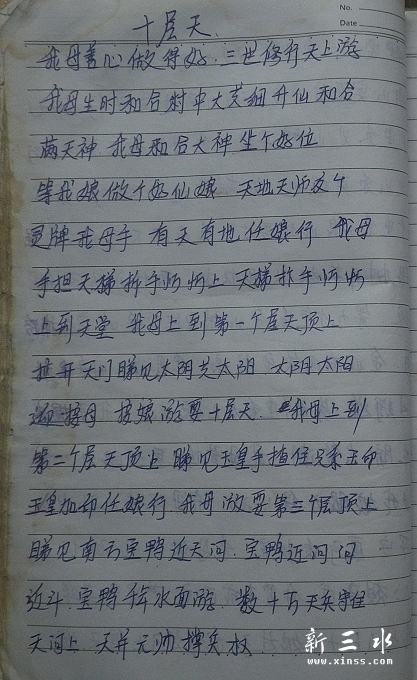 No.
Date
十层天
我母善心做得好.三世修行天上游
我母生时和合对中大 细升仙和合
两天神 我母和合大神坐个好位
等我娘做个好仙娘 天地天师交个
灵牌我母手 有天有地任娘行 我母
手担天梯拆手 上 天梯拆手
上到天堂 我母上到第一个层天顶上
拉开天门睇见太阴共太阳 太阴太阳
迎接母 接娘游耍十层天. 我母上到
第二个层天顶上 睇见玉皇手揸住 玉印
玉皇加印任娘行 我母游耍第三个层顶上
睇见南 宝鸭近天河.宝鸭近河河
近斗.宝鸭 水面游.数十万天兵守住
天河上 天并元帅 兵权
新三水
www.xinss.com